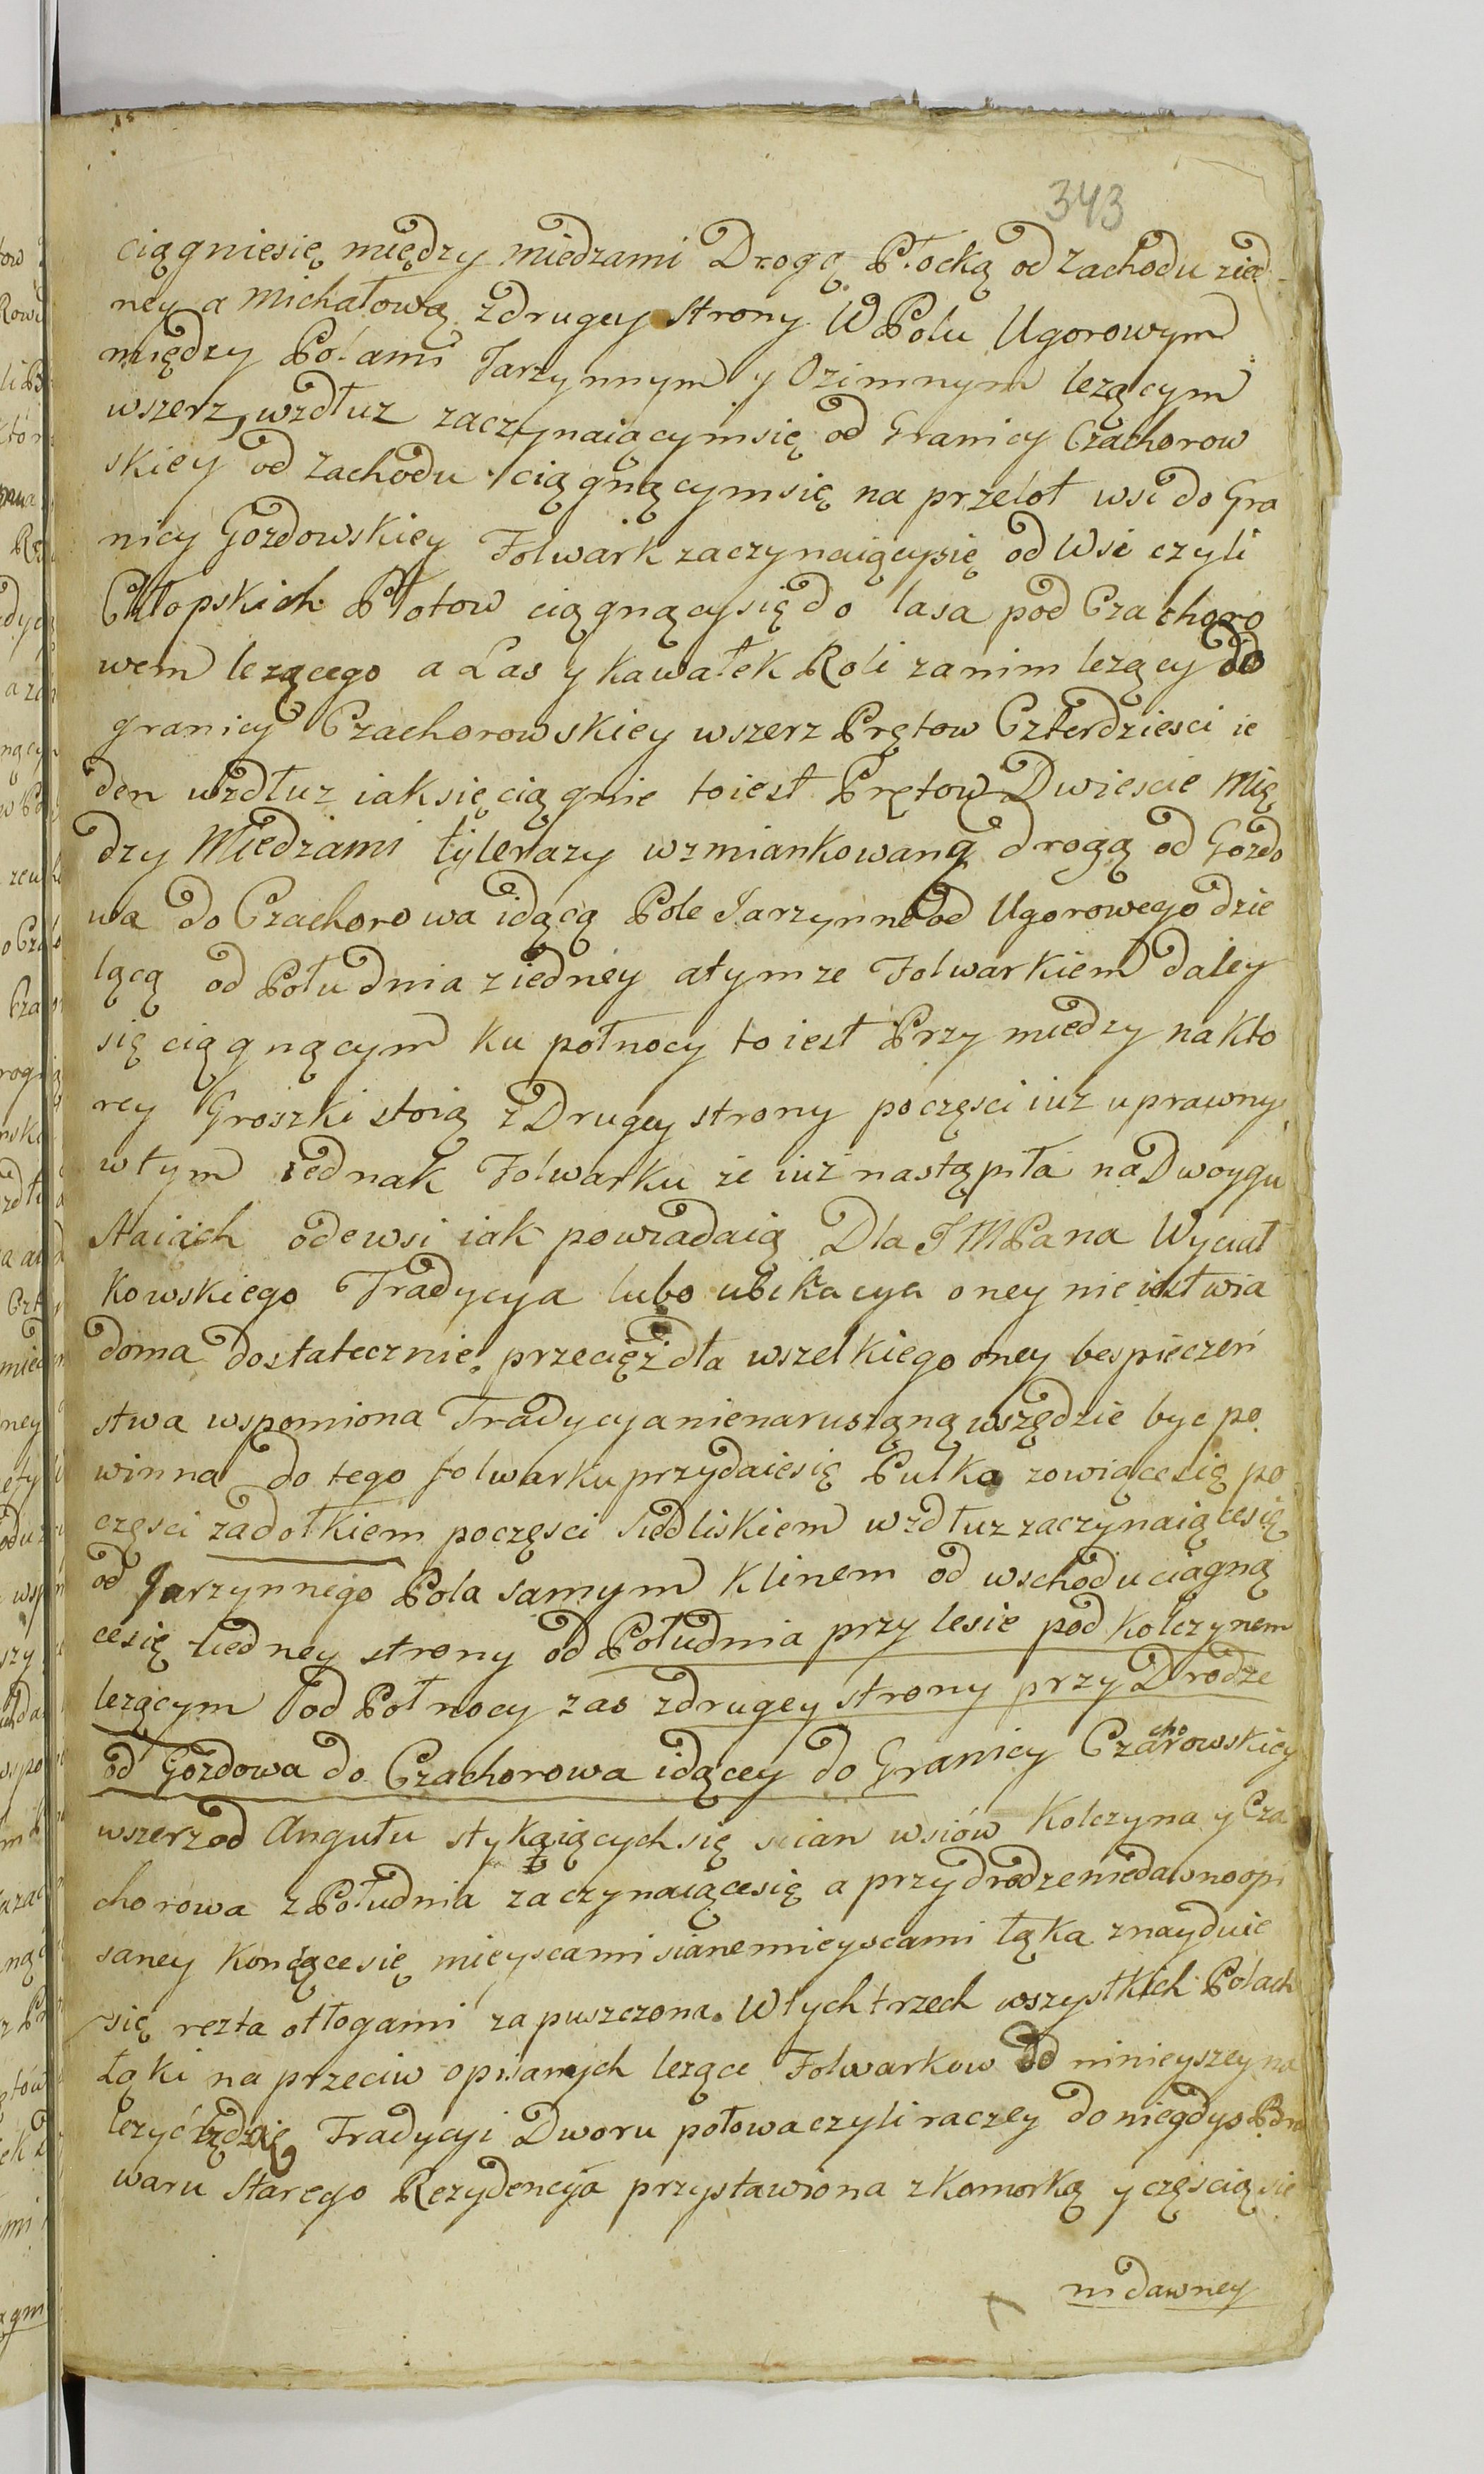 343
ciągniesię między miedzami Drogą Płocką od Zachodu zied-
ney a Michałową z drugey strony W Polu Ugorowym
między Polami Jarzynnym y Ozimnym lezącym
wszerz, wzdłuz zaczynaiącymsię od Granicy Czachorow
skiey od Zachodu ciągnącymsię na przelot wsi do Gra
nicy Gozdowskiey Folwark zaczynaiącysię od Wsi czyli
Chłopskich Płotow ciągnącysię do lasa pod Czachoro
wem lezącego a Las y kawałek Roli zanim lezący do
granicy Czachorowskiey wszerz Prętow Czterdziesci ie
den wzdłuz iaksię ciągnie toiest Prętow Dwiescie Mię
dzy Miedzami tylerazy wzmiankowaną drogą od Gozdo
wa do Czachorowa idącą Pole Jarzynne od Ugorowego dzie
lącą od Południa ziedney atymze Folwarkiem daley
się ciągnącym ku połnocy to iest Przy miedzy nakto
rey Groszki stoią z Drugey strony poczęsci iuz uprawny,
wtym iednak Folwarku ze iuz nastąpiła na Dwoygu
Staiach odewsi iak powiadaią Dla JMPana Wyciał
kowskiego Tradycya lubo ubikacya oney nie iest wia
doma dostatecznie, przecięż dla wszelkiego oney bespieczeń
stwa wspomiona Tradycya nienaruszaną wszędzie byc po
winna do tego folwarku przydaiesię Pulko zowiącesię po
częsci zadołkiem poczęsci Siedliskiem wzdłuz zaczynaiącesię
od Jarzynnego Pola samym Klinem od wschodu ciągną
cesię ziedney strony od Południa przy lesie pod Kolczynem
lezącym od Połnocy zas zdrugey strony przy Drodze
od Gozdowa do Czachorowa idącey do Granicy Czachorowskiey
wszerz od Angułu stykaiącychsię scian wsiów Kolczyna y Cza
chorowa z Południa zaczynaiącesię a przy drodze niedawno opi
saney kończącesię mieyscami sianemieyscami łąka znayduie
się rezta otłogami zapuszczona. Wtych trzech wszystkich Polach
Łąki na przeciw opisanych lezące Folwarkow do ninieyszey na
lezyć będzie Tradycyi Dworu połowa czyli raczey do niegdys Bro
waru Starego Rezydencyia przystawiona z komorką y częscią sie
ni dawney